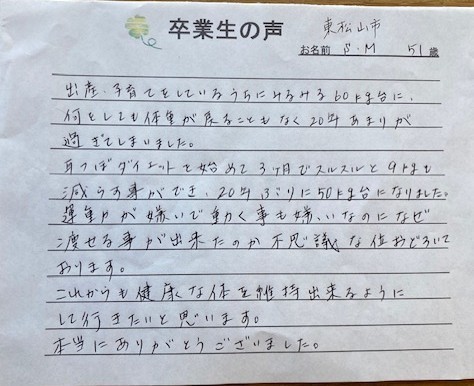 卒業生の声
東松山市
お名前 S・M 51歳
出産、子育てをしているうちにみるみる60kg台に、
何としても体重が戻ることもなく20年あまりが
過ぎてしまいました。
耳つぼダイエットを始めて3ヶ月でスルスルと9kgも
減らす事ができ、20年ぶりに50kg台になりました。
運動が嫌いで動く事も嫌いなのになぜ
痩せる事が出来たのか不思議な位おどろいて
おります。
これからも健康な体を維持出来るように
して行きたいと思います。
本当にありがとうございました。